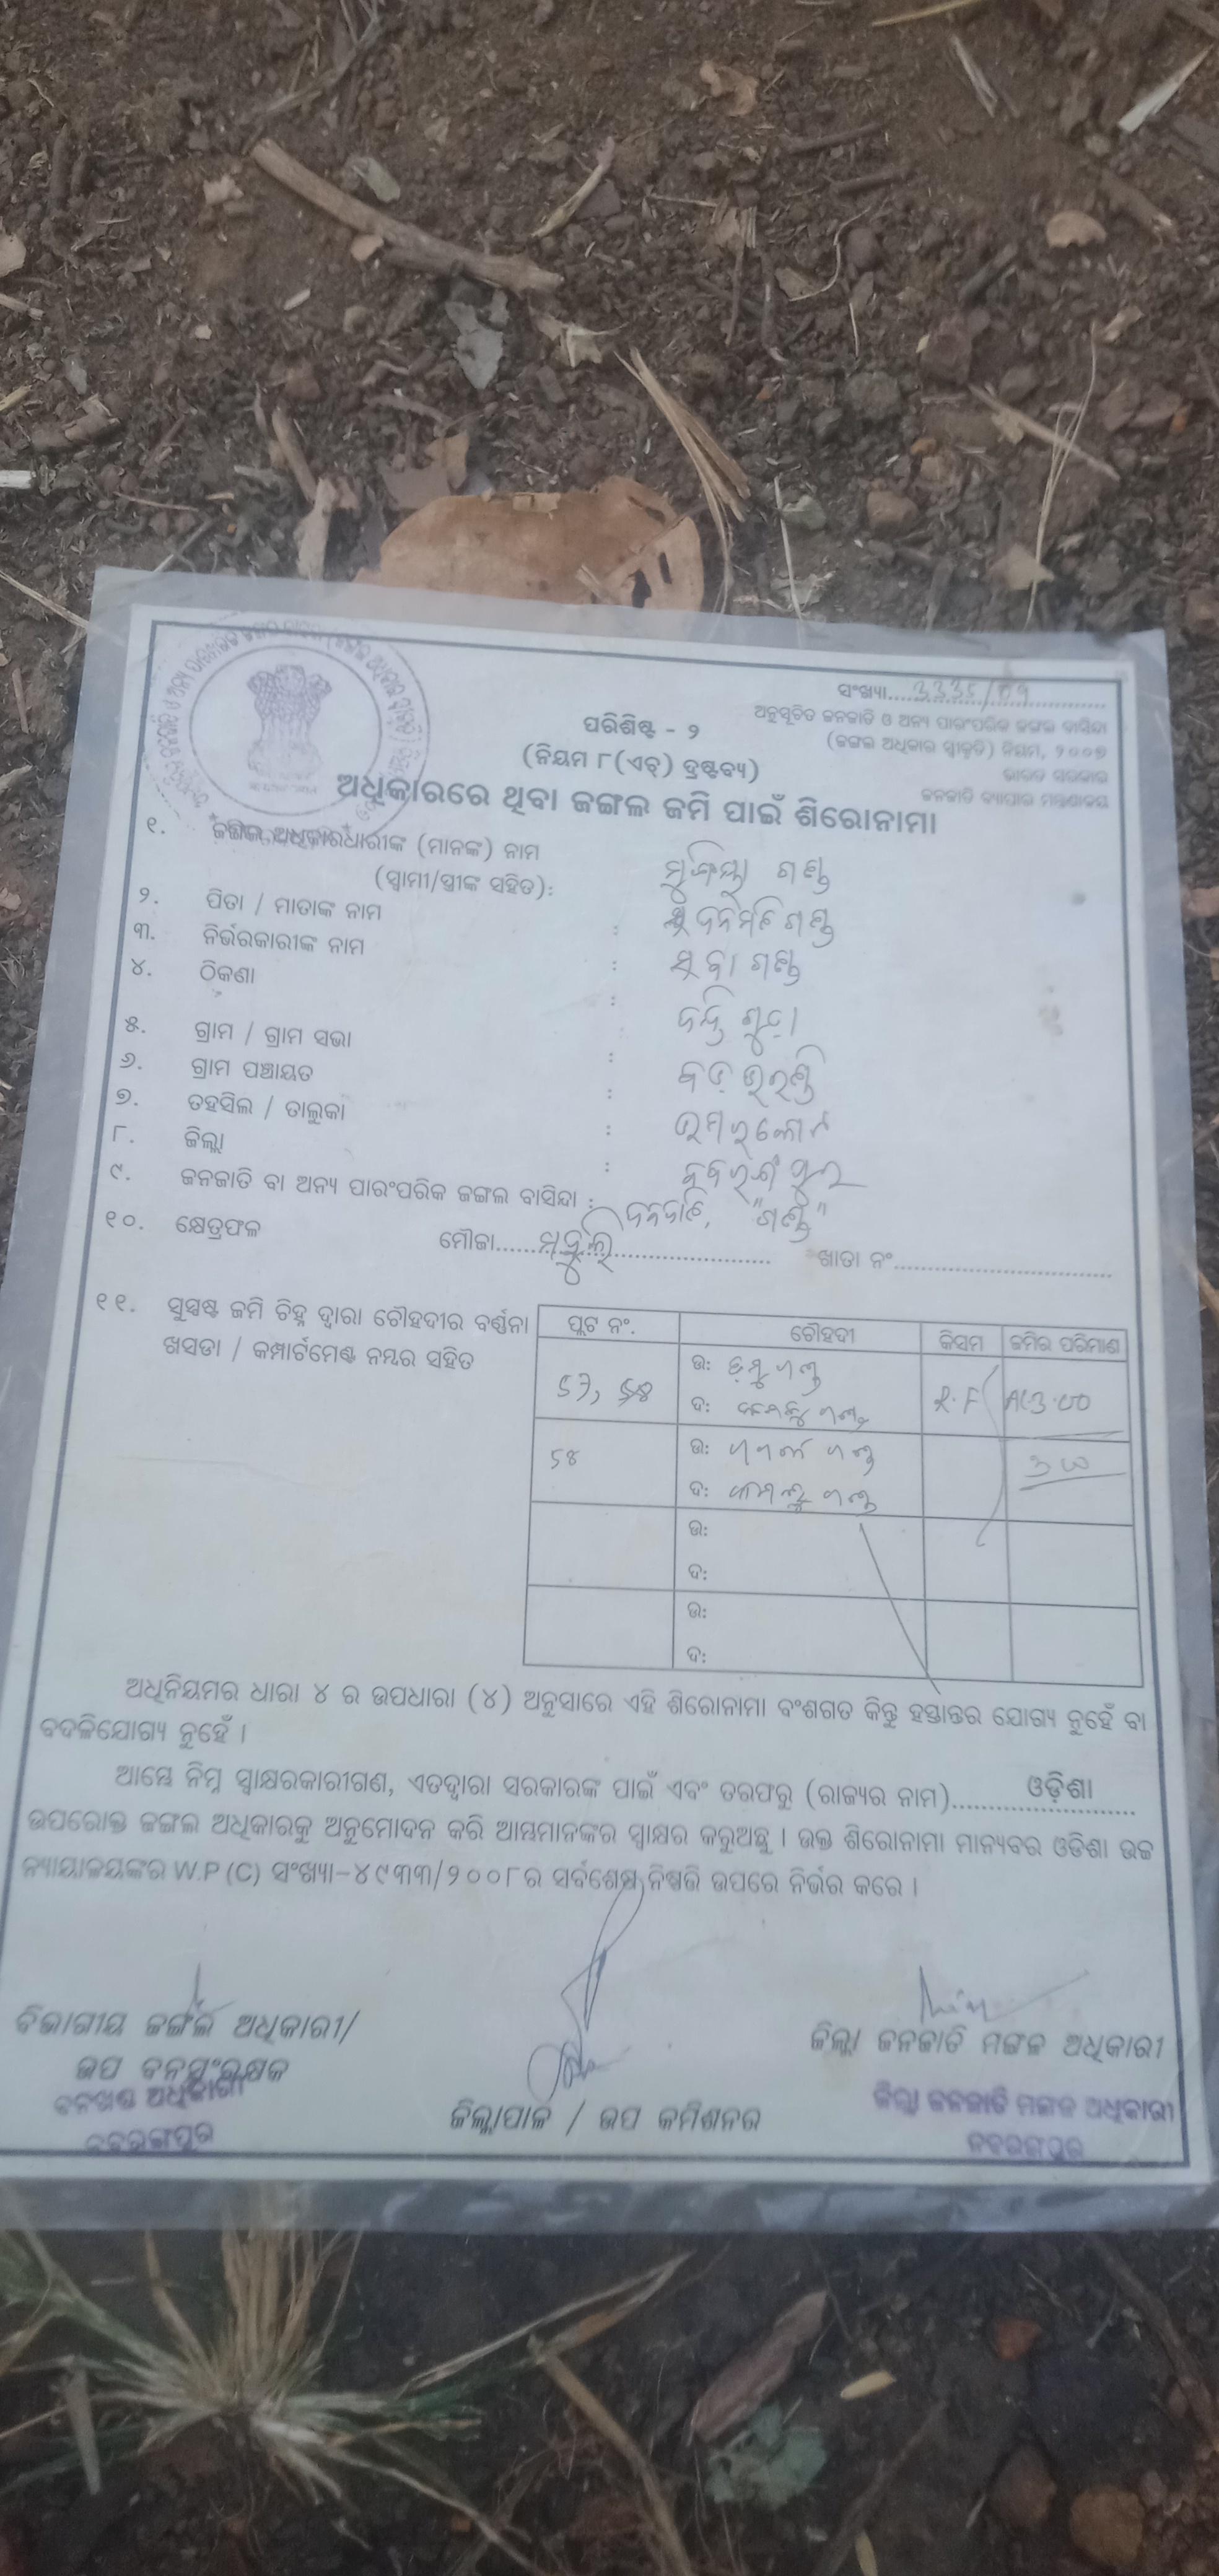 ସଂଖ୍ୟା....3335/09
ଅନୁସୂଚିତ ଜନଜାତି ଓ ଅନ୍ୟ ପାରଂପରିକ ଜଙ୍ଗଲ ବାସିନ୍ଦା
ପରିଶିଷ୍ଟ - ୨
(ଜଙ୍ଗଲ ଅଧିକାର ସ୍ୱୀକୃତି) ନିୟମ, ୨୦୦୭
(ନିୟମ ୮(ଏଚ୍) ଦ୍ରଷ୍ଟବ୍ୟ)
ଭାରତ ସରକାର
ଜନଜାତି ବ୍ୟାପାର ମନ୍ତ୍ରଣାଳୟ
ଅଧିକାରରେ ଥିବା ଜଙ୍ଗଲ ଜମି ପାଇଁ ଶିରୋନାମା
୧. ଜଙ୍ଗଲ ଅଧିକାରଧାରୀଙ୍କ (ମାନଙ୍କ) ନାମ
(ସ୍ୱାମୀ/ସ୍ତ୍ରୀଙ୍କ ସହିତ): ଗଣ୍ଡ
୨. ପିତା / ମାତାଙ୍କ ନାମ : ଗଣ୍ଡ
୩. ନିର୍ଭରକାରୀଙ୍କ ନାମ : ଗଣ୍ଡ
୪. ଠିକଣା :
୫. ଗ୍ରାମ / ଗ୍ରାମ ସଭା :
୬. ଗ୍ରାମ ପଞ୍ଚାୟତ :
୭. ତହସିଲ / ତାଲୁକା : ଉମରକୋଟ
୮. ଜିଲ୍ଲା : ନବରଙ୍ଗପୁର
୯. ଜନଜାତି ବା ଅନ୍ୟ ପାରଂପରିକ ଜଙ୍ଗଲ ବାସିନ୍ଦା : ଜନଜାତି, "ଗଣ୍ଡ"
୧୦. କ୍ଷେତ୍ରଫଳ ମୌଜା.......... ଖାତା ନଂ..........
୧୧. ସୁସ୍ପଷ୍ଟ ଜମି ଚିହ୍ନ ଦ୍ୱାରା ଚୌହଦୀର ବର୍ଣ୍ଣନା
ଖସଡା / କମ୍ପାର୍ଟମେଣ୍ଟ ନମ୍ବର ସହିତ
ପ୍ଲଟ ନଂ. ଚୌହଦୀ କିସମ ଜମିର ପରିମାଣ
ଉ: ଗଣ୍ଡ
ଦ: ଗଣ୍ଡ R.F
ଉ: ଗଣ୍ଡ
ଦ: ଗଣ୍ଡ
ଉ:
ଦ:
ଉ:
ଦ:
ଅଧିନିୟମର ଧାରା ୪ ର ଉପଧାରା (୪) ଅନୁସାରେ ଏହି ଶିରୋନାମା ବଂଶଗତ କିନ୍ତୁ ହସ୍ତାନ୍ତର ଯୋଗ୍ୟ ନୁହେଁ ବା
ବଦଳିଯୋଗ୍ୟ ନୁହେଁ ।
ଆମ୍ଭେ ନିମ୍ନ ସ୍ୱାକ୍ଷରକାରୀଗଣ, ଏତଦ୍ୱାରା ସରକାରଙ୍କ ପାଇଁ ଏବଂ ତରଫରୁ (ରାଜ୍ୟର ନାମ)......ଓଡ଼ିଶା......
ଉପରୋକ୍ତ ଜଙ୍ଗଲ ଅଧିକାରକୁ ଅନୁମୋଦନ କରି ଆମ୍ଭମାନଙ୍କର ସ୍ୱାକ୍ଷର କରୁଅଛୁ । ଉକ୍ତ ଶିରୋନାମା ମାନ୍ୟବର ଓଡିଶା ଉଚ୍ଚ
ନ୍ୟାୟାଳୟଙ୍କର W.P (C) ସଂଖ୍ୟା-୪୯୩୩/୨୦୦୮ର ସର୍ବଶେଷ ନିଷ୍ପତ୍ତି ଉପରେ ନିର୍ଭର କରେ ।
ବିଭାଗୀୟ ଜଙ୍ଗଲ ଅଧିକାରୀ/
ଉପ ବନସଂରକ୍ଷକ
ବନଖଣ୍ଡ ଅଧିକାରୀ
ନବରଙ୍ଗପୁର
ଜିଲ୍ଲାପାଳ / ଉପ କମିଶନର
ଜିଲ୍ଲା ଜନଜାତି ମଙ୍ଗଳ ଅଧିକାରୀ
ଜିଲ୍ଲା ଜନଜାତି ମଙ୍ଗଳ ଅଧିକାରୀ
ନବରଙ୍ଗପୁର